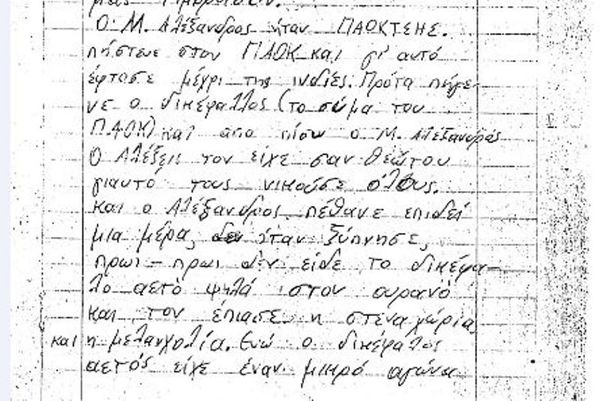 Ο Μ. Αλέξανδρος ήταν ΠΑΟΚΤΣΗΣ.
πήστευε στον ΠΑΟΚ και γι' αυτό
έφτασε μέχρι της ινδίες. Πρότα πήγε-
νε ο δικέφαλλος (το σύμα του
ΠΑΟΚ) και απο πίσω ο Μ. Αλέξανδρος
Ο Αλέξεις τον είχε σαν θεώτου
γιαυτό τους νικούσε όλους.
Και ο Αλέξανδρος πέθανε επιδεί
μια μέρα, όταν ξύπνησε,
πρωι-πρωι δεν είδε το δικέφα-
λο αετό ψηλά στον ουρανό
και τον επιασε η στεναχώρια
και η μελαγχολία. Ενώ ο δικέφαλος
αετός είχε έναν μικρό αγώνα